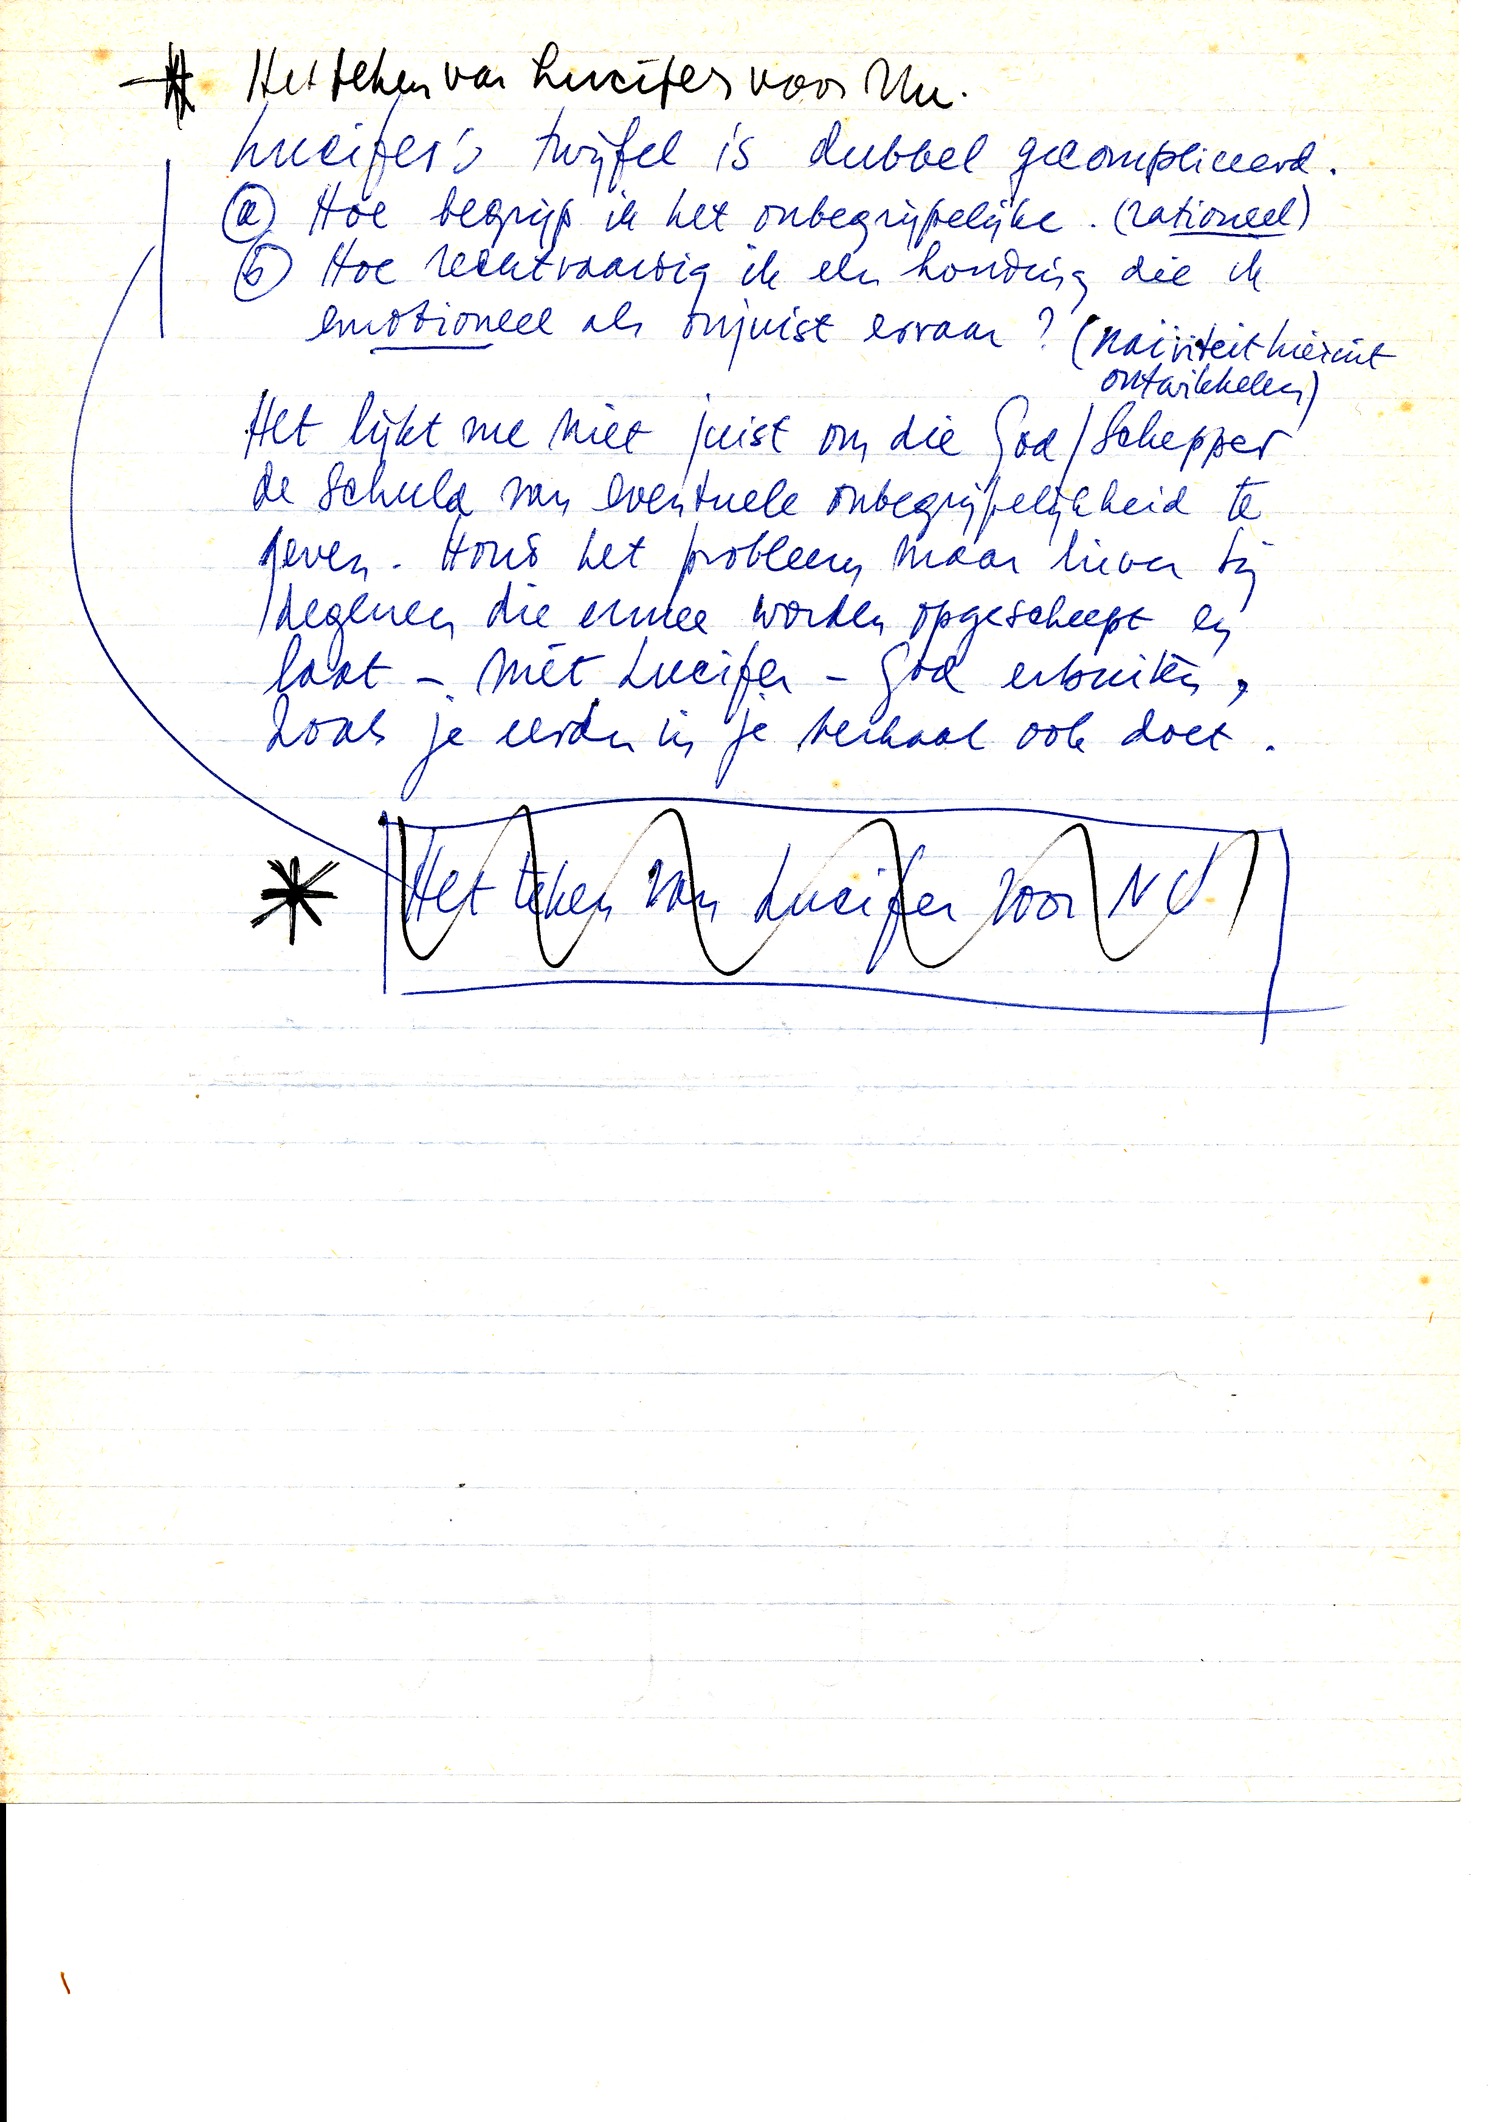 * Het teken van Lucifer voor Nu.
Lucifer's twijfel is dubbel gecompliceerd.
(a) Hoe begrijp ik het onbegrijpelijke. (rationeel)
(b) Hoe rechtvaardig ik een houding die ik
emotioneel als onjuist ervaar? (naïviteit hieruit
ontwikkelen)
Het lijkt me niet juist om die God/Schepper
de schuld van eventuele onbegrijpelijkheid te
geven. Houd het probleem maar liever bij
degenen die ermee worden opgescheept en
laat – mét Lucifer – God erbuiten,
zoals je eerder in je verhaal ook doet.
* Het teken van Lucifer voor NU